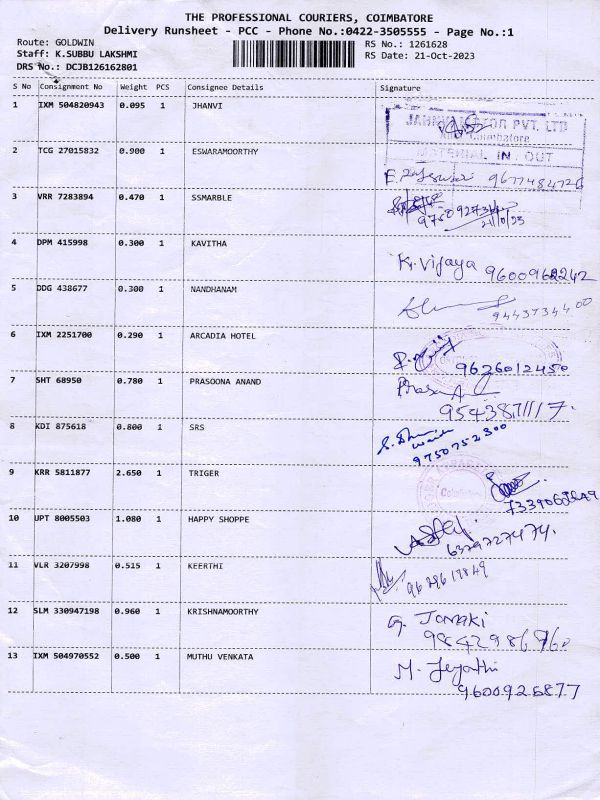 THE PROFESSIONAL COURIERS, COIMBATORE
Delivery Runsheet - PCC - Phone No.:0422-3505555 - Page No.:1
Route: GOLDWIN
Staff: K.SUBBU LAKSHMI
DRS No.: DCJB126162801
RS No.: 1261628
RS Date: 21-Oct-2023
S No Consignment No Weight PCS Consignee Details Signature
1 IXM 504820943 0.095 1 JHANVI
PVT. LTD
Coimbatore
MATERIAL IN / OUT
2 TCG 27015832 0.900 1 ESWARAMOORTHY
9677484726
3 VRR 7283894 0.470 1 SSMARBLE
21/10/23
4 DPM 415998 0.300 1 KAVITHA
K. Vijaya 9600962242
5 DDG 438677 0.300 1 NANDHANAM
9443734400
6 IXM 2251700 0.290 1 ARCADIA HOTEL
9626012450
7 SHT 68950 0.780 1 PRASOONA ANAND
Prasoona A
8 KDI 875618 0.800 1 SRS
9750752300
9 KRR 5811877 2.650 1 TRIGER
10 UPT 8005503 1.080 1 HAPPY SHOPPE
6379727474.
11 VLR 3207998 0.515 1 KEERTHI
12 SLM 330947198 0.960 1 KRISHNAMOORTHY
G. Janaki
13 IXM 504970552 0.500 1 MUTHU VENKATA
M. Jeyanthi
9600926877